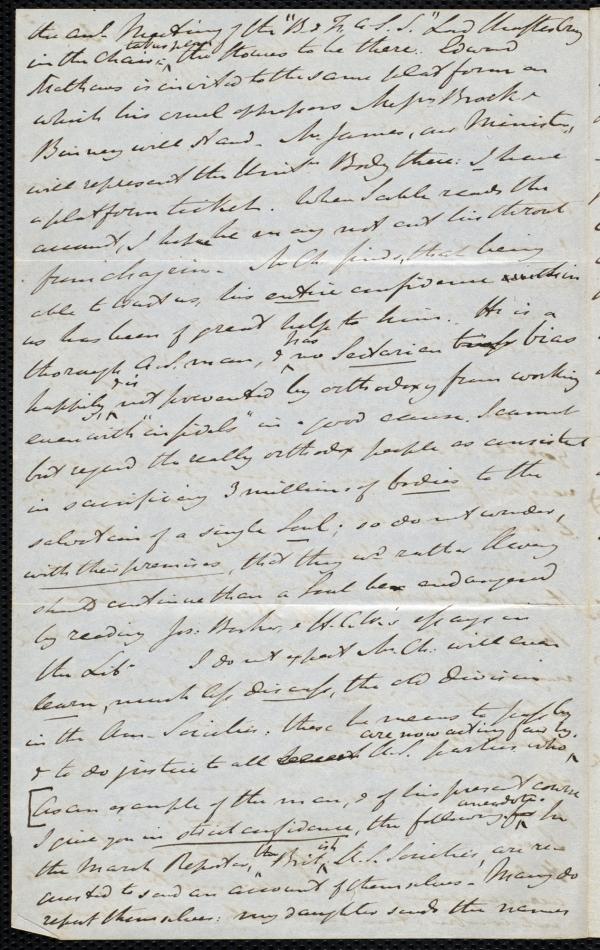 the anl. Meeting of the "B & F. A. S. S." Lord Shaftesbury
in the Chair; & the Stowes to be there. Edward
Mathews is invited to the same platform on
which his cruel oppressors Messrs Brock &
Binney will stand. Mr James, our Minister,
will represent the Unitn Body there: I have
a platform ticket. When Sable reads the
account, I hope he may not cut his throat
from chagrin. Mr Ch. finds, that being
able to trust us, his entire confidence within
us has been of great help to him. He is a
thorough A.S. man, & has no Sectarian bias
happily, & is not prevented by orthodoxy from working
even with "infidels" in a good cause. I cannot
but regard the really orthodox people as consistent
in sacrificing 3 millions of bodies to the
salvation of a single Soul; so do not wonder,
with their premises, that they wd rather Slavery
should continue than a Soul be endangered
by reading Jos: Barker, & H. C. W's essays in
the Libr. I do not expect Mr Ch. will even
learn, much less discuss, the old division
in the Amn Societies: these he means to pass by
& to do justice to all A.S. parties who
are now acting fair by.
[As an example of the man, & of his present course
I give you in strict confidence, the following anecdote: In
the March Reporter, the British A.S. Societies, are re-
quested to send an account of themselves. Many do
report themselves: my daughter sends the names